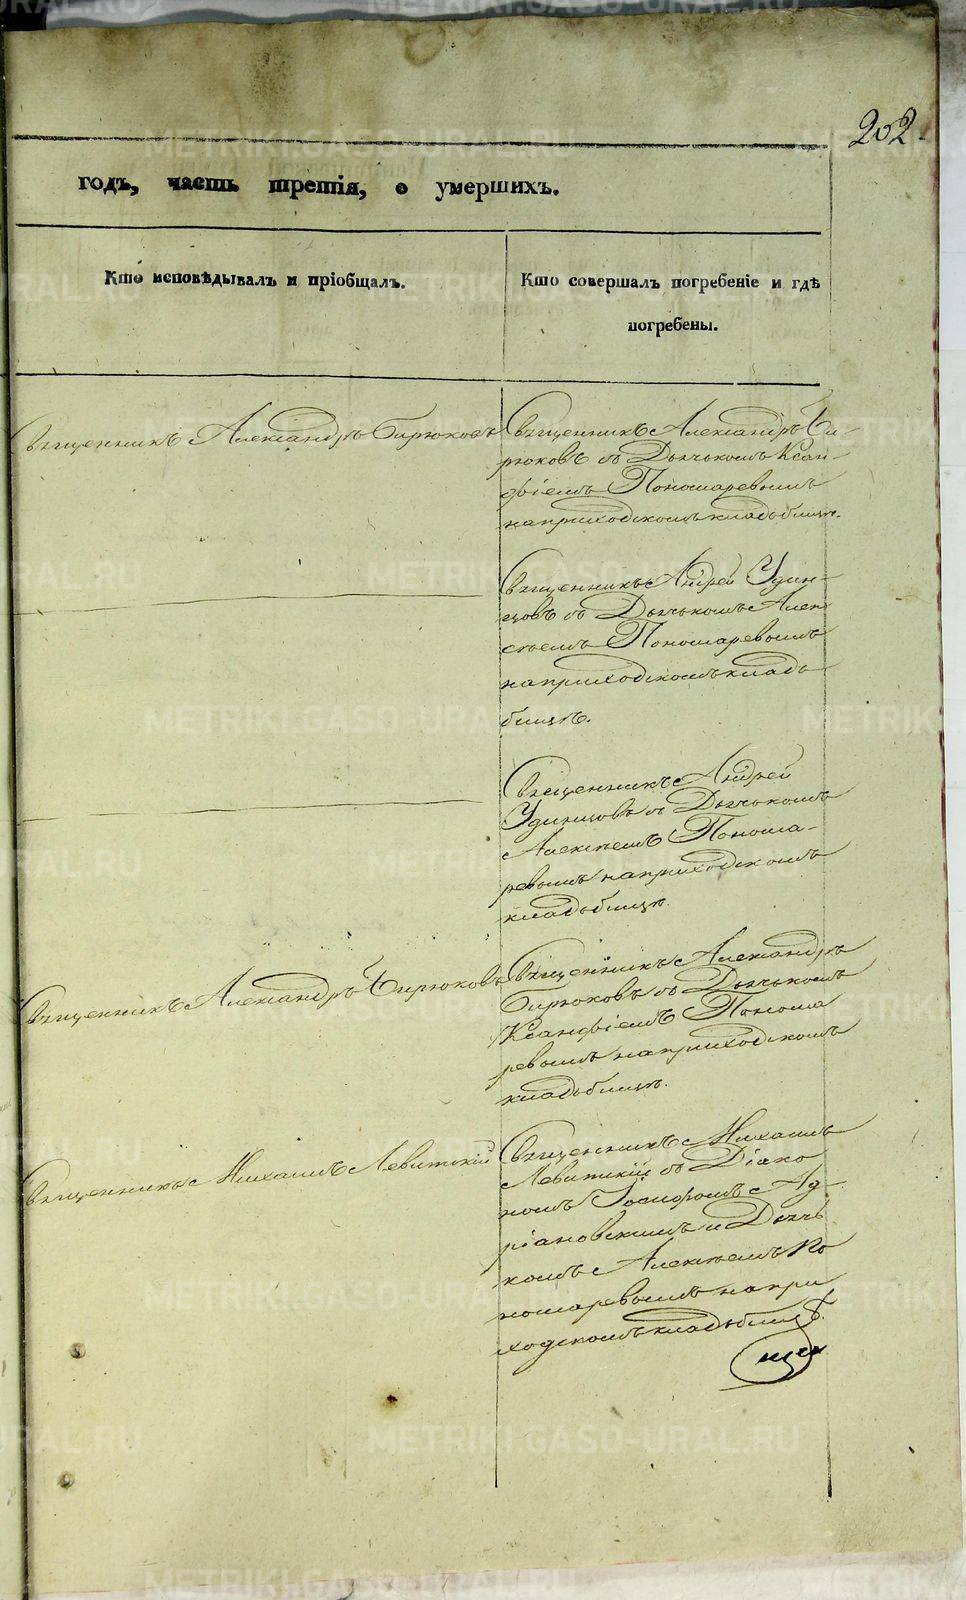 202.
годъ, часть третія, о умершихъ.
Кто исповѣдывалъ и пріобщалъ.
Кто совершалъ погребеніе и гдѣ
погребены.
Священникъ Александръ Бирюковъ
Священникъ Александръ Би-
рюковъ съ Дьячькомъ Ксан-
фіемъ Пономаревымъ
на приходскомъ кладбищѣ.
Священникъ Андрей Удин-
цовъ съ Дьячькомъ Алек-
сѣемъ Пономаревымъ
на приходскомъ клад
бищѣ.
Священникъ Андрей
Удинцовъ съ Дьячькомъ
Алексѣемъ Понома-
ревымъ на приходскомъ
кладбищѣ.
Священникъ Александръ Бирюковъ
Священникъ Александръ
Бирюковъ съ Дьячькомъ
Ксанфіемъ Понома
ревымъ на приходскомъ
кладбищѣ.
Священникъ Михаилъ Левитскій
Священникъ Михаилъ
Левитскій съ Діако
номъ Іосифомъ Ад-
ріановскимъ и Дьячь
комъ Алексѣемъ По
номаревымъ на при
ходскомъ кладбищѣ.
METRIKI.GASO-URAL.RU